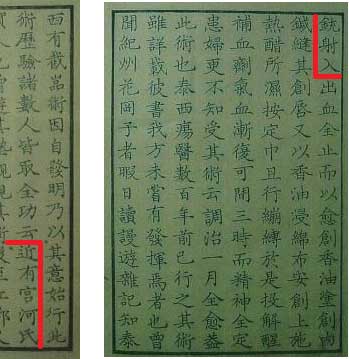 銃射入出血全止而以愈創香油塗創内
鍼縫其創唇又以香油浸綿布安創上施
熱醋所濕按定巾且行繃縛於是投解醒
補血劑氣血漸復可閲三時而精神全定
患婦更不知受其術云調治一月全愈蓋
此術也泰西瘍醫數百年前已行之其術
雖詳載彼書我方未嘗有發揮焉者也曾
聞紀州花岡子者暇日讀漫遊雜記知泰
西有截嵓術因自發明乃以其意始行此
術歴驗諸數人皆取全功云近有宮河氏